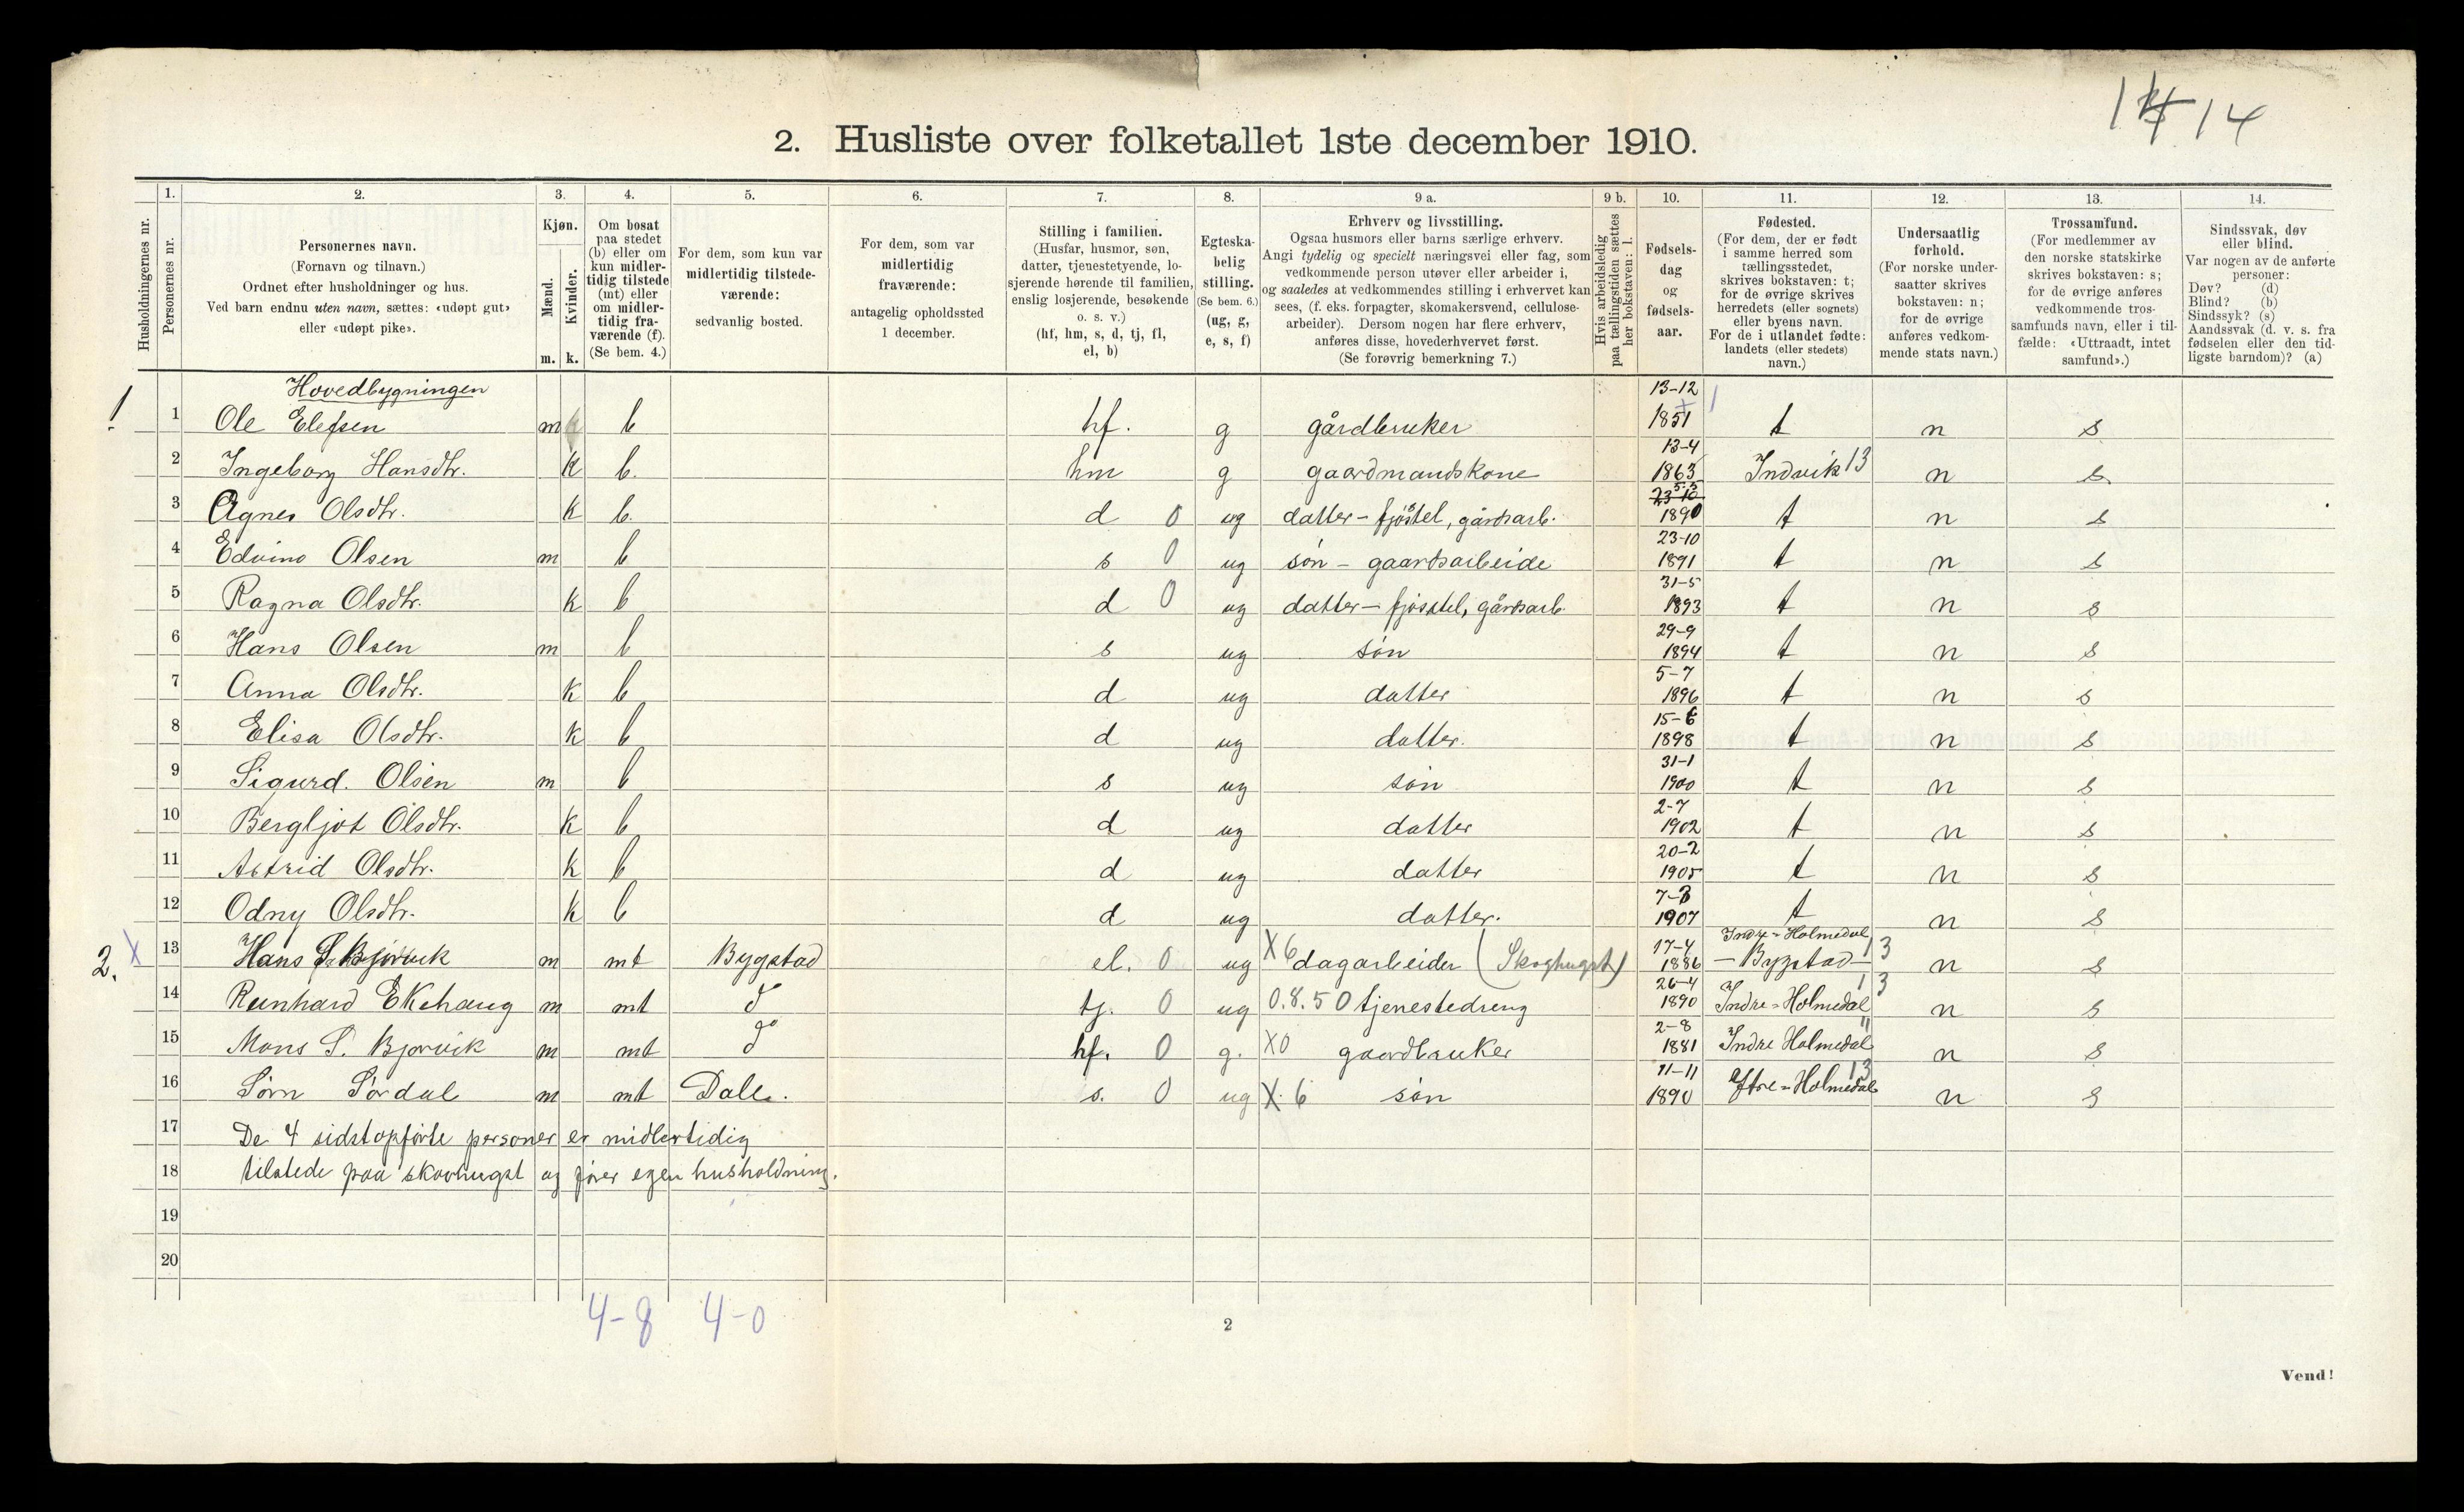 14 14
2. Husliste over folketallet 1ste december 1910.
Husholdningernes nr.
1. Personernes nr.
2. Personernes navn. (Fornavn og tilnavn.) Ordnet efter husholdninger og hus. Ved barn endnu uten navn, sættes: «udøpt gut» eller «udøpt pike».
3. Kjøn. Mænd. m. Kvinder. k.
4. Om bosat paa stedet (b) eller om kun midlertidig tilstede (mt) eller om midlertidig fraværende (f). (Se bem. 4.)
5. For dem, som kun var midlertidig tilstedeværende: sedvanlig bosted.
6. For dem, som var midlertidig fraværende: antagelig opholdssted 1 december.
7. Stilling i familien. (Husfar, husmor, søn, datter, tjenestetyende, losjerende hørende til familien, enslig losjerende, besøkende o. s. v.) (hf, hm, s, d, tj, fl, el, b)
8. Egteskabelig stilling. (Se bem. 6.) (ug, g, e, s, f)
9 a. Erhverv og livsstilling. Ogsaa husmors eller barns særlige erhverv. Angi tydelig og specielt næringsvei eller fag, som vedkommende person utøver eller arbeider i, og saaledes at vedkommendes stilling i erhvervet kan sees, (f. eks. forpagter, skomakersvend, cellulosearbeider). Dersom nogen har flere erhverv, anføres disse, hovederhvervet først. (Se forøvrig bemerkning 7.)
9 b. Hvis arbeidsledig paa tællingstiden sættes her bokstaven: l.
10. Fødselsdag og fødselsaar.
11. Fødested. (For dem, der er født i samme herred som tællingsstedet, skrives bokstaven: t; for de øvrige skrives herredets (eller sognets) eller byens navn. For de i utlandet fødte: landets (eller stedets) navn.)
12. Undersaatlig forhold. (For norske undersaatter skrives bokstaven: n; for de øvrige anføres vedkommende stats navn.)
13. Trossamfund. (For medlemmer av den norske statskirke skrives bokstaven: s; for de øvrige anføres vedkommende trossamfunds navn, eller i tilfælde: «Uttraadt, intet samfund».)
14. Sindssvak, døv eller blind. Var nogen av de anførte personer: Døv? (d) Blind? (b) Sindssyk? (s) Aandssvak (d. v. s. fra fødselen eller den tidligste barndom)? (a)
Hovedbygningen
1 Ole Elefsen m b hf. g gårdbruker 13-12 1851 t n s
2 Ingeborg Hansdtr. k b. hm g gaardmandskone 13-4 1863 Indvik 13 n s.
3 Agnes Olsdtr. k b. d 0 ug datter - fjøsstel, gårdsarb. 23-10 5-5 1890 t n s
4 Edvino Olsen m b s 0 ug søn - gaardsarbeide 23-10 1891 t n s
5 Ragna Olsdtr. k b d 0 ug datter - fjøsstel, gårdsarb. 31-5 1893 t n s
6 Hans Olsen m b s ug søn 29-9 1894 t n s
7 Anna Olsdtr. k b d ug datter 5-7 1896 t n s
8 Elisa Olsdtr. k b d ug datter. 15-6 1898 t n s
9 Sigurd. Olsen m b s ug søn 31-1 1900 t n s
10 Bergljot Olsdtr. k b d ug datter 2-7 1902 t n s
11 Astrid Olsdtr. k b d ug datter 20-2 1905 t n s
12 Odny Olsdtr. k b d ug datter. 7-3 1907 t n s
2. X 13 Hans S. Bjørvik m mt Bygstad el. 0 ug X6 dagarbeider (Skoghugst) 17-4 1886 Indre=Holmedal - Bygstad - 13 n s
14 Reinhard Ekehaug m mt do tj. 0 ug 0.8.50 tjenestedreng 26-4 1890 Indre=Holmedal 13 n s
15 Mons S. Bjørvik m mt do hf. 0 g. X0 gaardbruker 2-8 1881 Indre Holmedal " n s
16 Sørn Sørdal m mt Dale. s. 0 ug X.6 søn 11-11 1890 Ytre=Holmedal 13 n s
17 De 4 sidstopførte personer er midlertidig
18 tilstede paa skovhugst og fører egen husholdning.
19
20
4-8 4-0
2
Vend!